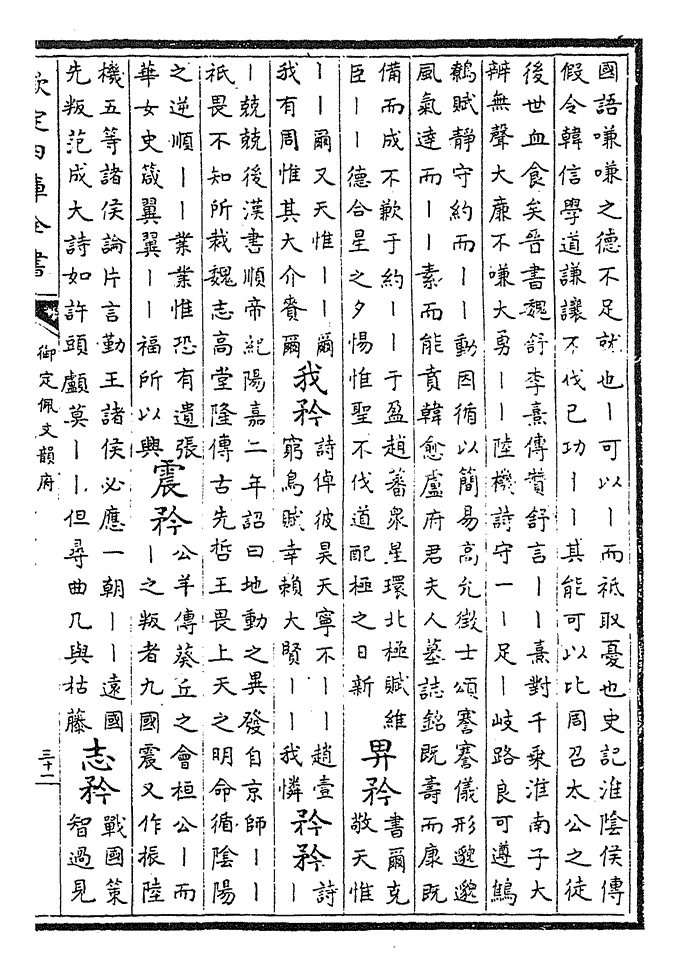 國語嗛嗛之德不足就也丨可以丨而祇取憂也史記淮隂侯傳
假令韓信學道謙讓不伐己功丨丨其能可以比周召太公之徒
後世血食矣晉書魏舒李熹傳贊舒言丨丨熹對千乗淮南子大
辨無聲大廉不嗛大勇丨丨陸機詩守一丨足丨岐路良可遵鷦
鷯賦靜守約而丨丨動因循以簡易高允徵士頌謇謇儀形邈邈
風氣達而丨丨素而能賁韓愈盧府君夫人墓誌銘既壽而康既
備而成不歉于約丨丨于盈趙蕃衆星環北極賦維
臣丨丨德合星之夕惕惟聖不伐道配極之日新
畀矜
書爾克
敬天惟
丨丨爾又天惟丨丨爾
我有周惟其大介賚爾
我矜
詩倬彼昊天寧不丨丨趙壹
窮鳥賦幸賴大賢丨丨我憐
矜矜
詩
丨
丨兢兢後漢書順帝紀陽嘉二年詔曰地動之異發自京師丨丨
祇畏不知所裁魏志高堂隆傳古先哲王畏上天之明命循陰陽
之逆順丨丨業業惟恐有遺張
華女史箴翼翼丨丨福所以興
震矜
公羊傳葵丘之會桓公丨而
丨之叛者九國震又作振陸
機五等諸侯論片言勤王諸侯必應一朝丨丨遠國
先叛范成大詩如許頭顱莫丨丨但尋曲几與枯藤
志矜
戰國策
智過見
欽定四庫全書
御定佩文韻府
三十二